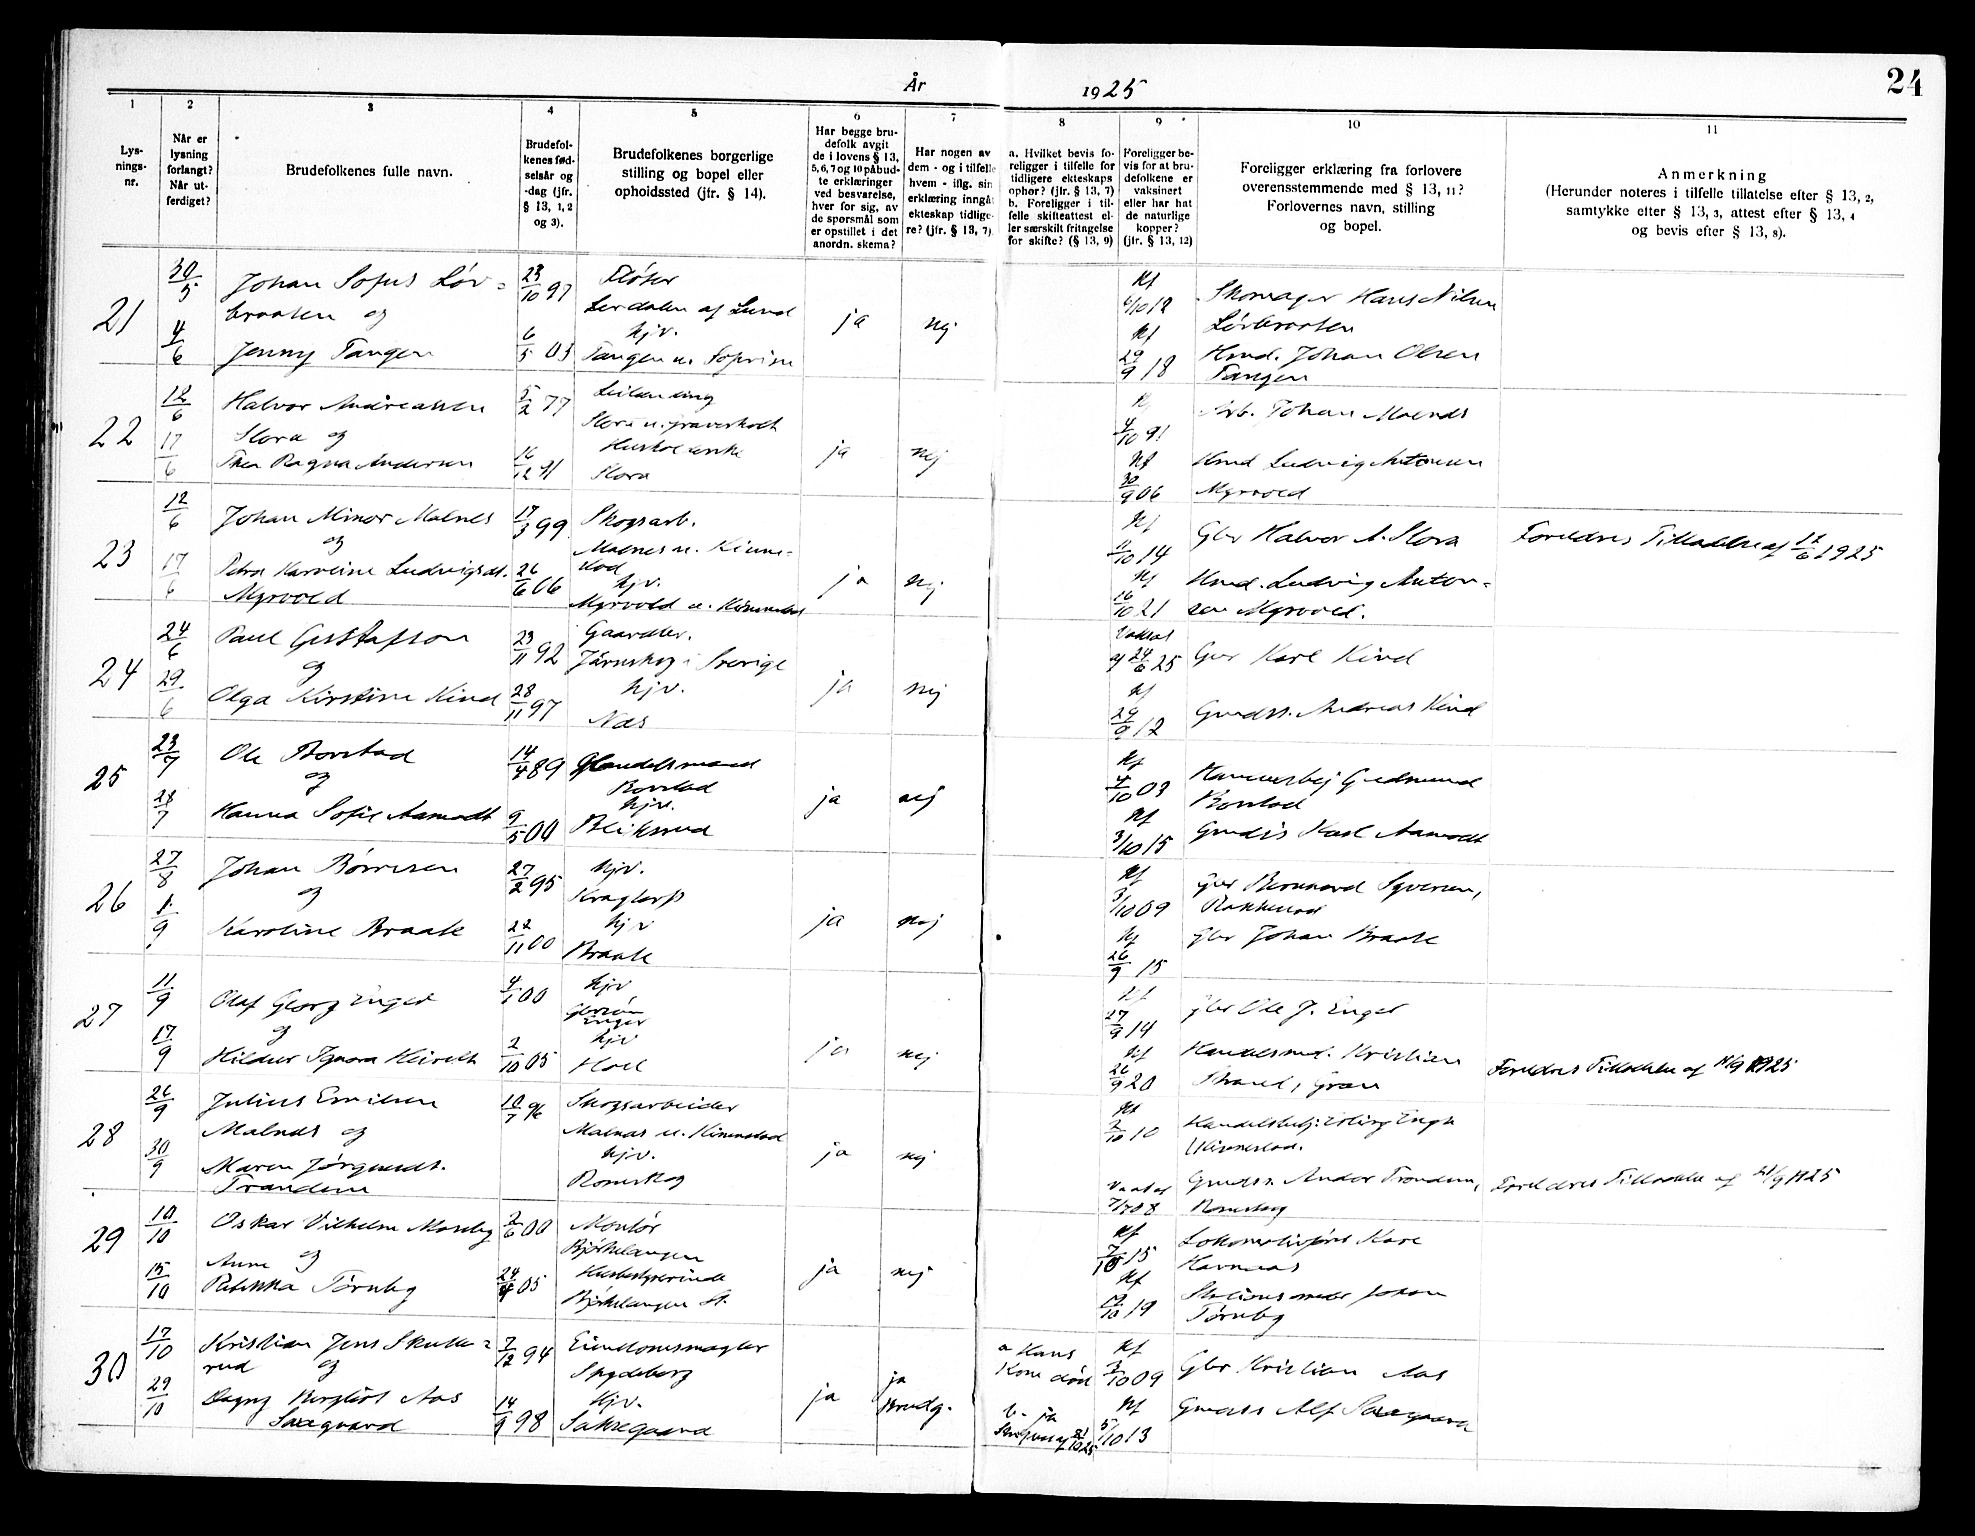 År 1925
24
1
2
3
4
5
6
7
8
9
10
11
Lys-
nings-
nr.
Når er
lysning
forlangt?
Når ut-
ferdiget?
Brudefolkenes fulle navn.
Brudefol-
kenes fød-
selsår og
-dag (jfr.
§ 13, 1, 2
og 3).
Brudefolkenes borgerlige
stilling og bopel eller
opholdssted (jfr. § 14).
Har begge bru-
defolk avgit
de i lovens § 13,
5, 6, 7 og 10 påbud-
te erklæringer
ved besvarelse,
hver for sig, av
de spørsmål som
er opstillet i det
anordn. skema?
Har nogen av
dem - og i tilfelle
hvem - iflg. sin
erklæring inngåt
ekteskap tidlige-
re? (jfr. § 13, 7)
a. Hvilket bevis fo-
religger i tilfelle for
tidligere ekteskaps
ophør? (jfr. § 13, 7)
b. Foreligger i til-
felle skifteattest el-
ler særskilt fritagelse
for skifte? (§ 13, 9)
Foreligger be-
vis for at bru-
defolkene er
vaksinert
eller har hat
de naturlige
kopper?
(jfr. § 13, 12)
Foreligger erklæring fra forlovere
overensstemmende med § 13, 11?
Forlovernes navn, stilling
og bopel.
Anmerkning
(Herunder noteres i tilfelle tillatelse efter § 13, 2,
samtykke efter § 13, 3, attest efter § 13, 4
og bevis efter § 13, 8).
21
30/5
4/6
Johan Sofus Løv-
braaten og
Jenny Tangen
23/10 97
6/5 03
Fløter
Lerdalen af Lund
hjv.
Tangen u. Soprim
ja
nej
Kf
6/10 12
Kf
29/9 18
Skomager Hans Nilsen
Løvbraaten
Hmd. Johan Olsen
Tangen
22
12/6
17/6
Halvor Andreassen
Slora og
Thea Ragna Andersen
5/2 77
16/12 91
Leilending
Slora u.
Slora
ja
nej
Kf
4/10 91
Kf
30/9 06
Arb. Johan Malnes
Hmd Ludvig Antonsen
Myrvold
23
12/6
17/6
Johan Minor Malnes
og
Petra Karoline Ludvigsdt.
Myrvold
17/3 99
26/6 06
Skogsarb.
Malnes u. Kinne-
stad
hjv.
Myrvold u. Kinnestad
ja
nej
Kf
11/10 14
Kf
16/10 21
Gbr Halvor A. Slora
Hmd. Ludvig Anton-
sen Myrvold.
Foreldres Tilladelse af 12/6 1925
24
24/6
29/6
Paul Gustafson
og
Olga Kirstine Kind
23/11 92
28/11 97
Gaardbr.
Järnskog i Sverige
hjv.
Næs
ja
nej
af 24/6 25
Kf
29/9 12
Gbr Karl Kind
Grdss. Andreas Kind
25
23/7
28/7
Ole Borstad
og
Hanna Sofie Aamodt
14/4 89
9/5 00
Handelsmand
Borstad
hjv.
Bliksrud
ja
nej
Kf
4/10 03
Kf
3/10 15
Gudmund
Borstad
Karl Aamodt
26
27/8
1/9
Johan Børresen
og
Karoline Braate
27/2 95
22/11 00
hjv.
Kragtorp
hjv
Braate
ja
nej
Kf
3/10 09
Kf
26/9 15
Gbr Bernhard Syversen,
Rakkestad
Gbr Johan Braate
27
11/9
17/9
Olaf Georg Enger
og
Hildur
4/1 00
2/10 05
hjv
Enger
hjv
Hoel
ja
nej
Kf
27/9 14
Kf
26/9 20
Gbr Ole J. Enger
Handelsmd. Kristian
Strand, Gran
Foreldres Tilladelse af 11/9 1925
28
26/9
30/9
Julius Emilsen
Malnes og
Maren Jørgensdt.
Trandem
10/7 96
Skogsarbeider
Malnæs u. Kinnestad
hjv.
Romskog
ja
nej
Kf
2/10 10
7/7 08
Handelsbetj. Erling Engh
Kinnestad.
Grdss. Andor Trandem,
Romskog
Foreldres Tilladelse af 21/9 1925
29
10/10
15/10
Oskar Vilhelm Moseby
og
Anne
Rebekka Tørnby
2/6 00
24/4 05
Montør
Bjørkelangen
Husbestyrerinde
Bjørkelangen St.
ja
nej
Kf
7/10 15
Kf
19/10 19
Kare
Havnaas
Johan
Tørnby
30
17/10
29/10
Kristian Jens Skulle-
rud og
Dagny Bergliot Aas
Saxegaard
7/12 94
14/9 98
Eiendomsmægler
Spydeberg
hjv.
Saxegaard
ja
ja
Brudg.
a Hans
Kone død
b. ja
Kf
3/10 09
Kf
5/10 13
Gbr Kristian Aas
Grdss Alf Saxegaard